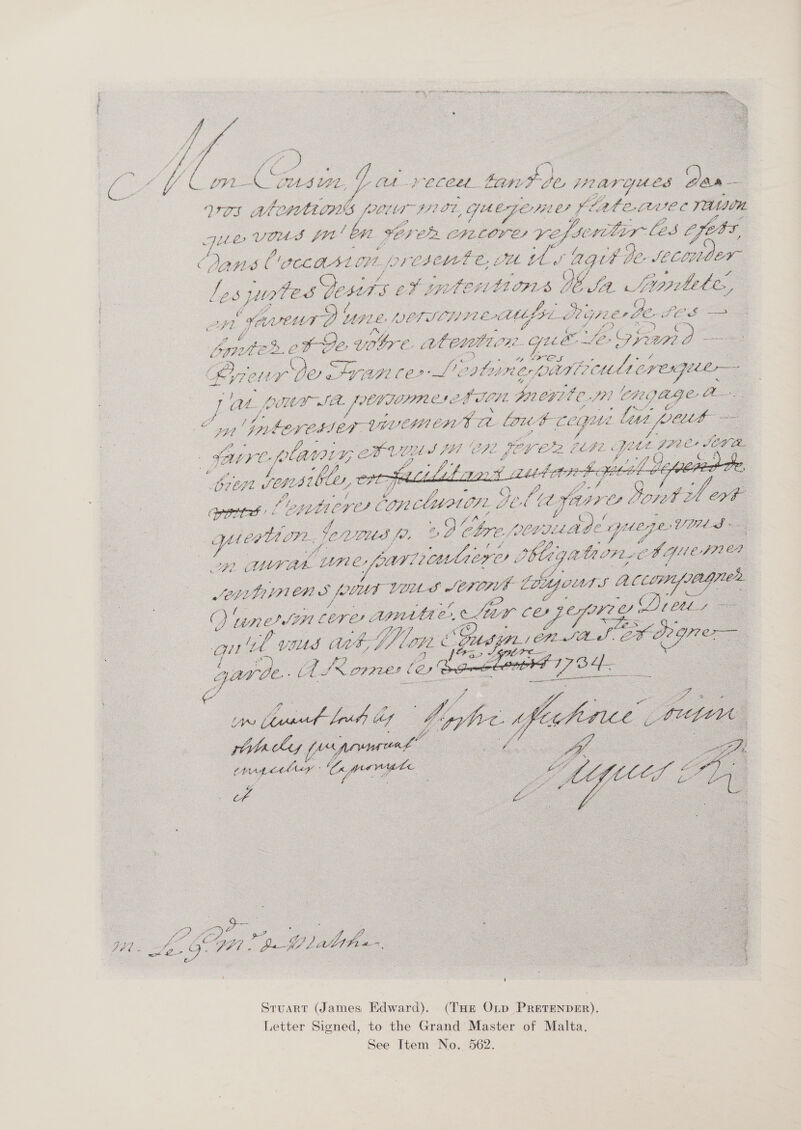 Mon Cousin, J'ai receu tant de marques des
vos atentions pour moi, que je me flate avec raison
que vous m'en ferez encore ressentir les efets,
Dans l'occasion presente, ou il s'agit de seconder
les justes desirs et intentions de sa Sainteté,
en faveur d'une personne aussi digne de ses
bontez et de vôtre atention que le Grand
Prieur de France. L'estime tres particuliere que
j'ai pour sa personne et son merite m'engage a
m'interesser vivement a tout ce qui lui peut
faire plaisir, et vous m'en ferez un qui me sera
bien sensible, en facilitant autant qu'il depend de
vous l'entiere conclusion de l'afaire dont il est
question. Je vous p. d'être persuadé que je vous
en aurai une particuliere obligation, et que mes
sentimens pour vous seront toujours accompagnez
D'une sincere amitié. Sur ce, je prie Dieu,
qu'il vous ait, Mon Cousin, en sa Ste et digne
garde. A Rome le 1734.
en levant touts les Vostre affectioné Cousin
obstacles qui pouroient
empecher la prompte Jaques R
et
m. Le G. Mre de Malthe.
STUART (James Edward). (THE OLD PRETENDER).
Letter Signed, to the Grand Master of Malta.
See Item No. 562.